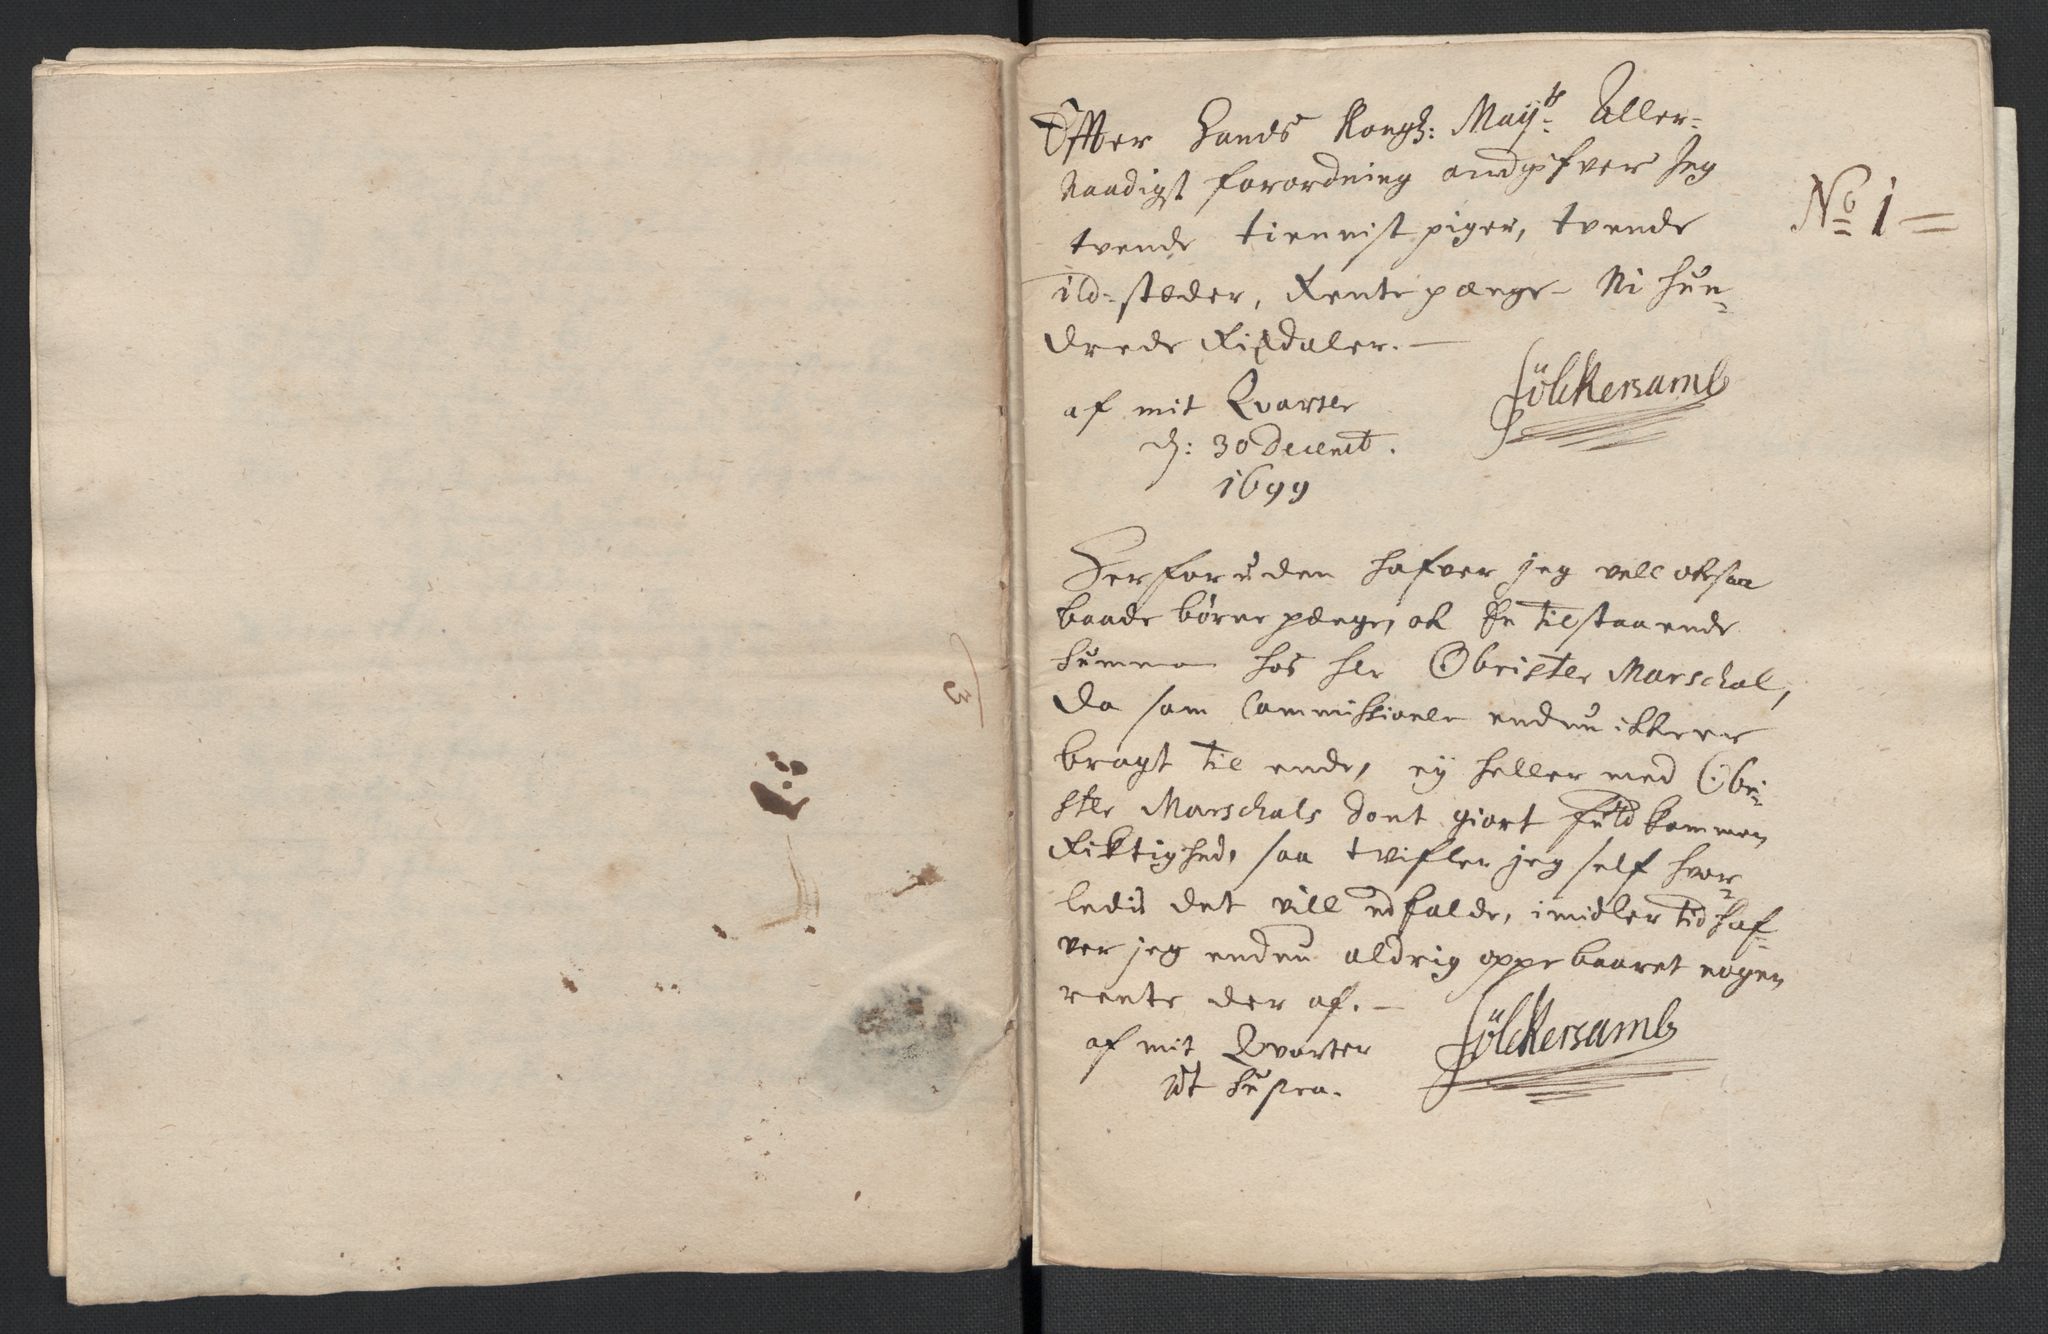 Effter Hands Kongl: Mayts Aller=
naadigst forordning andgifver Jeg
tvende tiennist piger, tvende
ild=stæder, Rente pænge Ni hun=
drede Rixdaler.—
af mit Qvarter
d: 30 Decemb.
1699
Sölckersamb
No 1=
Herforuden hafver jeg vell oksaa
baade börne pænge, ok En tilstaaende
summa hos Hr Obrister Marschal,
da som Commissionen endnu ikke er
bragt til ende, ey heller med Obri=
ster Marschals Bont giort fuldkommen
Riktighed, saa tvifler jeg self hvor=
ledis det vill udfalde, imidler tid haf=
ver jeg endnu aldrig oppebaaret nogen
rente der af.—
af mit Qvarter
ut supra.
Sölckersamb
3